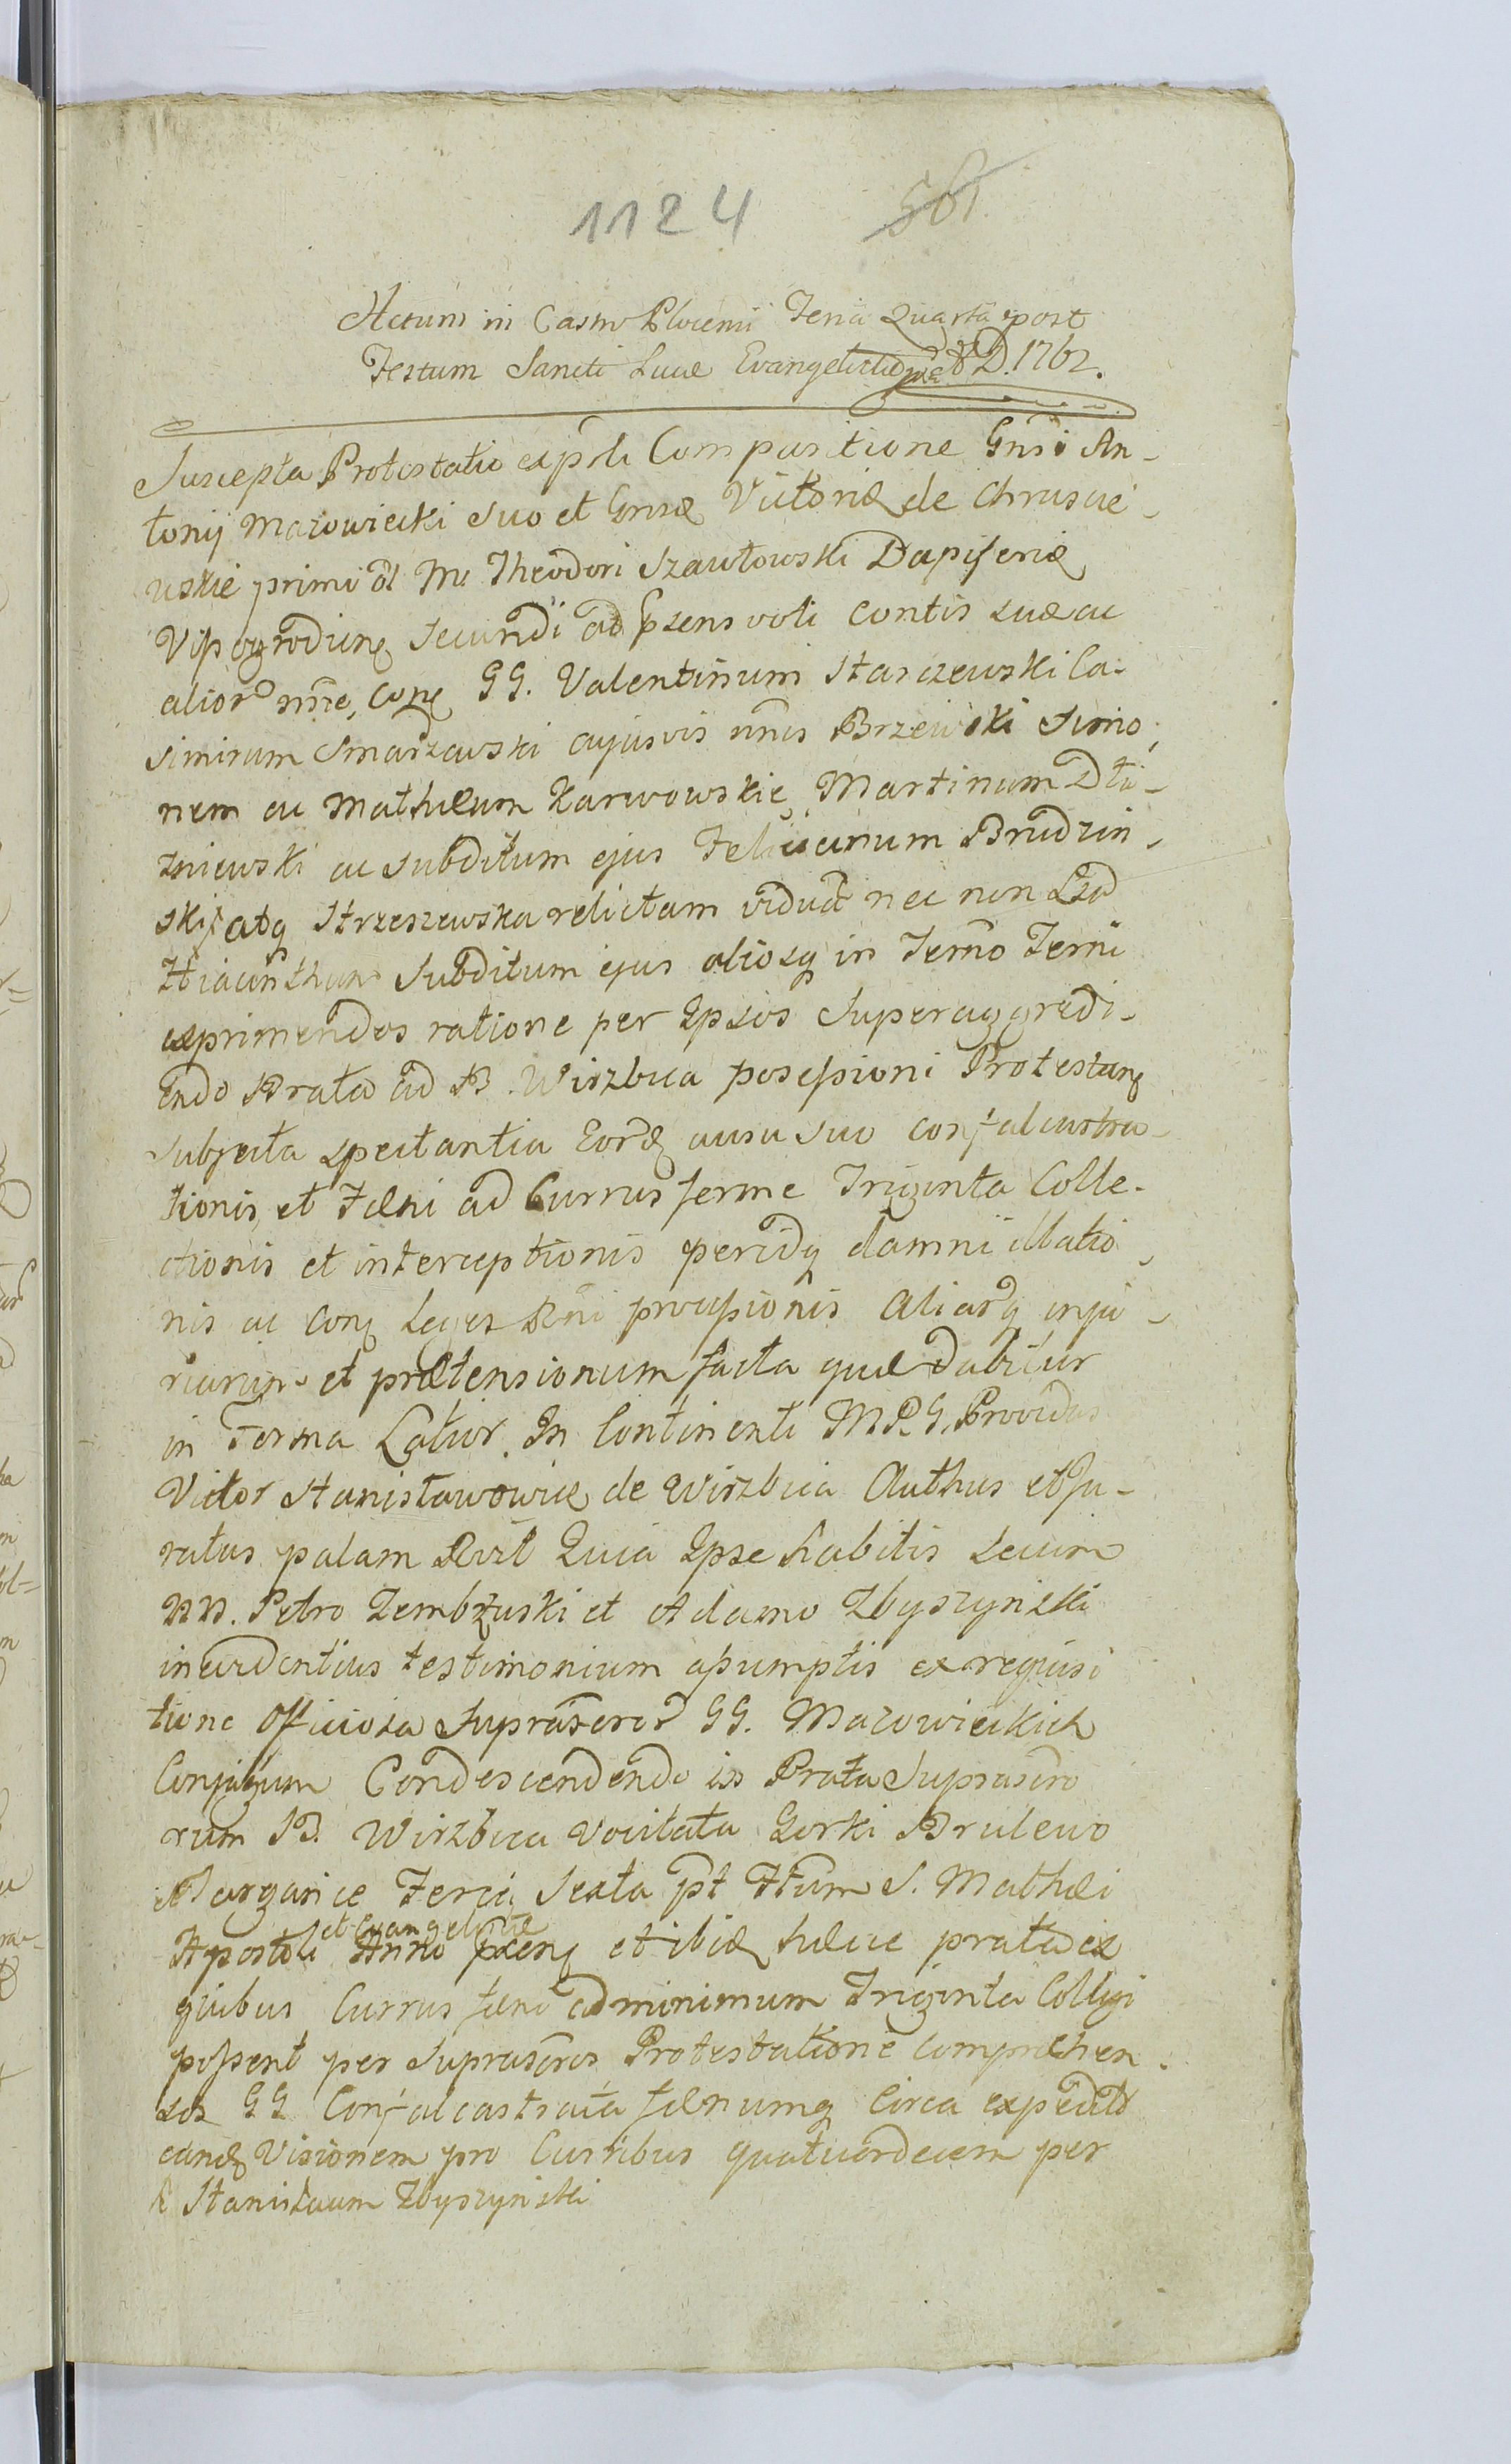 1124 561.
Actum in Castro Plocensi Feria Quarta post
Festum Sancti Lucae Evangelistae A D. 1762.
Suscepta Protestatio ex psli Compasitione Gnsi An-
tonij Mazowiecki suo et Gnsae Victoriae de Chruscie-
uskie primi ol M. Theodori Szawłowski Dapiferidae
Viszogrodieng secundi ad psens voti contis suae ac
alior nnie, cong GG. Valentinum Starczewski Ca-
simirum Smarzewski cujusvis nnis Brzewski Simo-
nem ac Mathaeum Karwowskie, Martinum Dłu-
zniewski ac subditum ejus Felicianum Brudzin-
ski, atq Strzeszewska relictam viduã nec non
Hiacinthum subditum ejus aliosq in Termo Terrii
exprimendos ratione per Ipsos superaggredi-
endo Prata ad B. Wirzbica possessioni Protestang
subjecta spectantia Eorq ausu suo confalcastra-
tionis, et Faeni ad Currus ferme Triginta Colle-
ctionis et interceptionis peridq damni illatio-
nis ac cong Leges Rni processionis Aliarq inju-
riarum et praetensionum facta quae dabitur
in Forma Latior. In Continenti M.P.G. Providus
Victor Stanisławowicz de Wirzbica Authus et Ju-
ratus palam Rvit Quia Ipse habitis secum
NN. Petro Zembrzuski et Adamo Zbyszynski
in evidentius testimonium assumptis ex requisi
tione Officiosa Suprascror GG. Mazowieckich
Conjugum Condescendendo in Prata Suprascro
rum B. Wirzbica vocitata Gorki Brulewo
Margance Feria Sexta pt Ftum S. Mathaei
et Evangelistae
Apostoli Anno pseng et ibiq haecce prata ex
quibus Currus faeni ad minimum Triginta Colligi
possent per Suprascros Protestatione compraehen-
sos GG Confalcastrata faenumq Circa expedit
eandq Visionem pro Curribus quatuordecem per
R Stanisłaum Zbyszynski